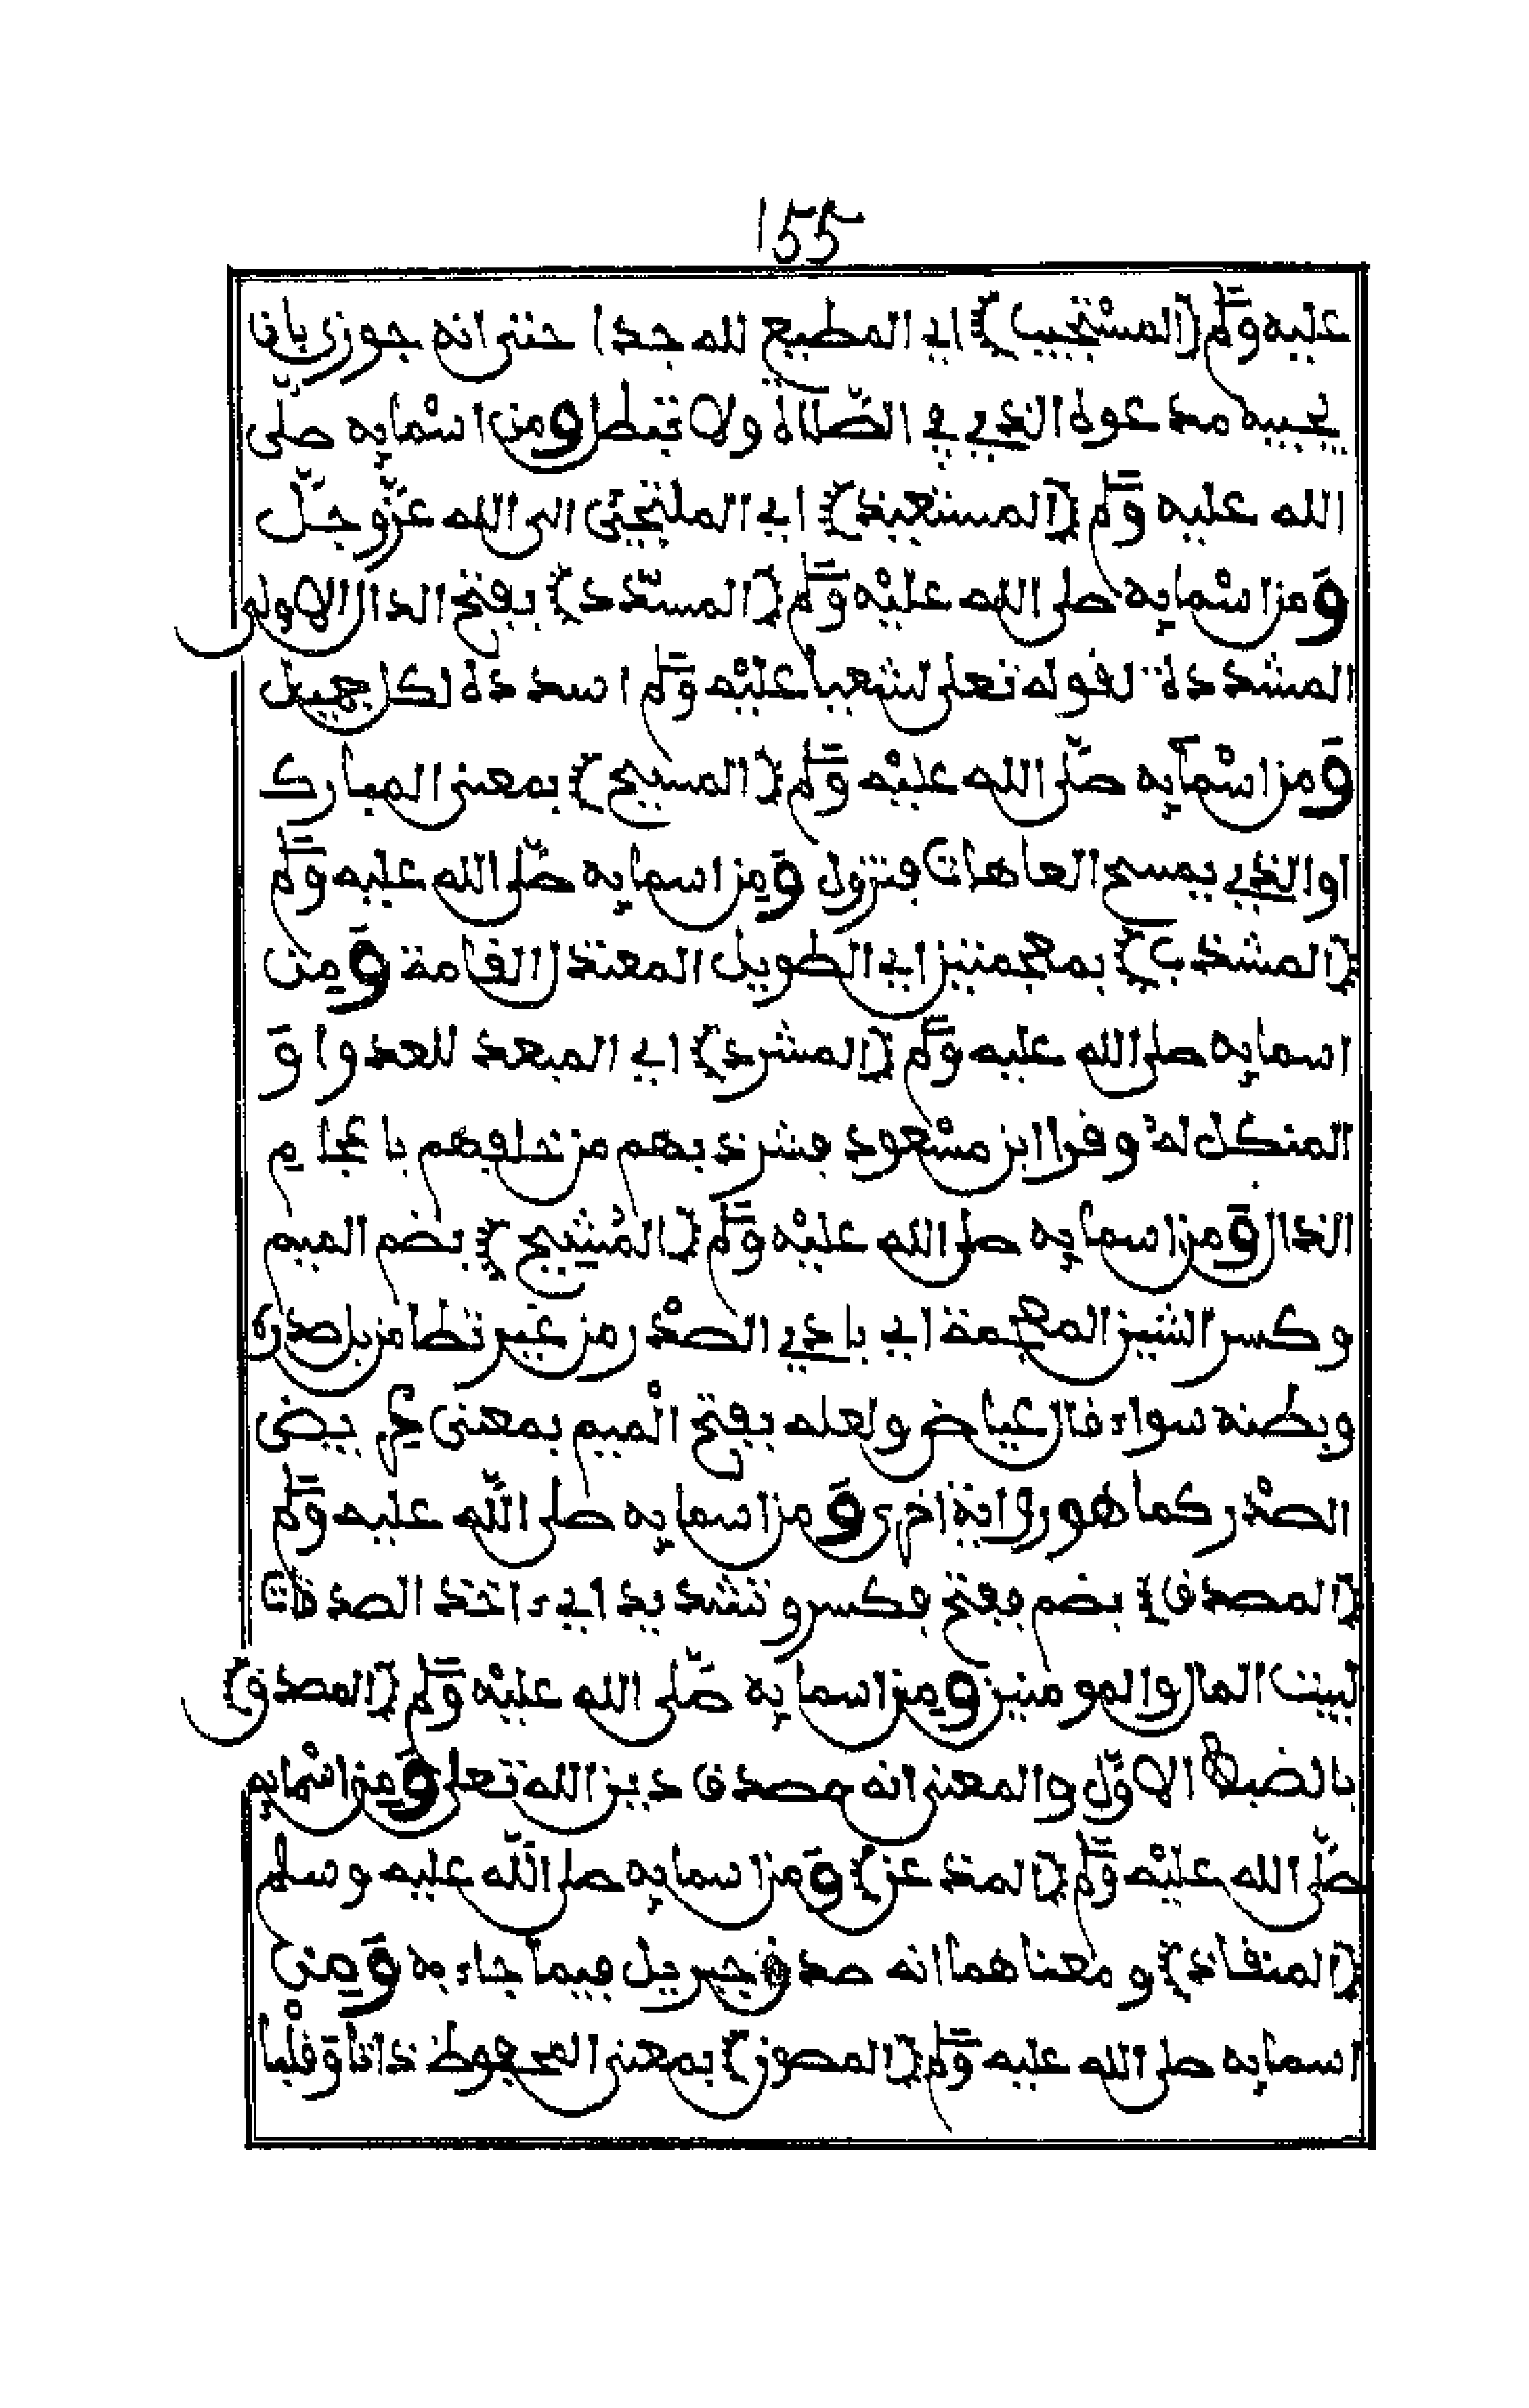 155
عليه وسلم (المستجيب) اي المطيع لله جدا حتى انه جوزي بان
يجيبه مدعوه الذي في الصلاة ولا تبطل ومن اسمايه صلى
الله عليه وسلم (المستعيذ) اي الملتجئ الى الله عز وجل
ومن اسمايه صلى الله عليه وسلم (المسدد) بفتح الدال الاولى
المشددة لقوله تعلى لشعيا عليه وسلم اسدده لكل جميل
ومن اسمايه صلى الله عليه وسلم (المسيح) بمعنى المبارك
او الذي يمسح العاهات فتزول ومن اسمايه صلى الله عليه وسلم
(المشذب) بمعجمتين اي الطويل المعتدل القامة ومن
اسمايه صلى الله عليه وسلم (المشرد) اي المبعد للعدو او
المنكل له وقرا ابن مسعود فشرذ بهم من خلفهم باعجام
الذال ومن اسمايه صلى الله عليه وسلم (المشيح) بضم الميم
وكسر الشين المعجمة اي بادي الصدر من غير تطامن بل صدره
وبطنه سواء قال عياض ولعله بفتح الميم بمعنى عريض
الصدر كما هو رواية اخرى ومن اسمايه صلى الله عليه وسلم
(المصدق) بضم ففتح فكسر وتشديد اي ءاخذ الصدقات
لبيت المال والمومنين ومن اسمايه صلى الله عليه وسلم (المصدق)
بالضبط الاول والمعنى انه مصدق دين الله تعلى ومن اسمايه
صلى الله عليه وسلم (المذعن) ومن اسمايه صلى الله عليه وسلم
(المنقاد) ومعناهما انه صدق جبريل فيما جاء به ومن
اسمايه صلى الله عليه وسلم (المصون) بمعنى المحفوظ ذاتا وقلبا